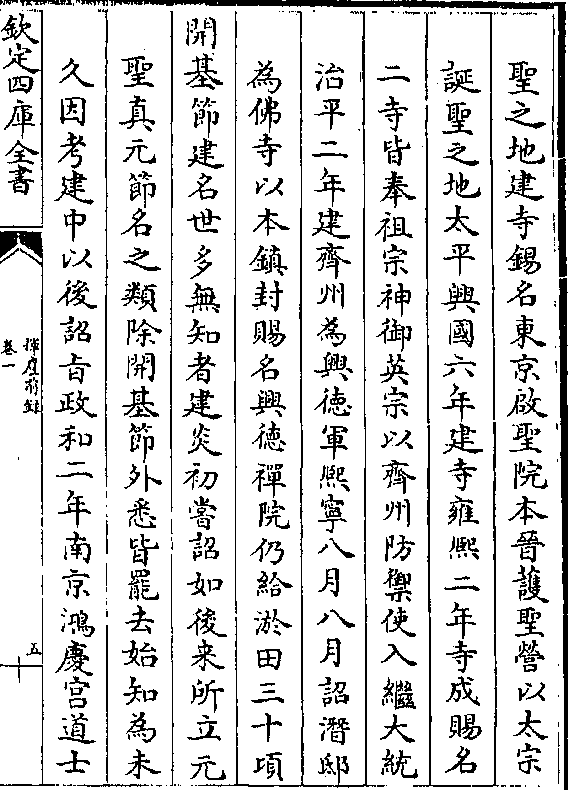 聖之地建寺錫名東京啟聖院本晉護聖營以太宗
誕聖之地太平興國六年建寺雍熙二年寺成賜名
二寺皆奉祖宗神御英宗以齊州防禦使入繼大統
治平二年建齊州為興徳軍熙寧八月八月詔潛邸
為佛寺以本鎮封賜名興徳禪院仍給淤田三十項
開基節建名世多無知者建炎初嘗詔如後来所立元
聖真元節名之類除開基節外悉皆罷去始知為未
久因考建中以後詔㫖政和二年南京鴻慶宫道士
欽定四庫全書
揮麈前録
卷一
五